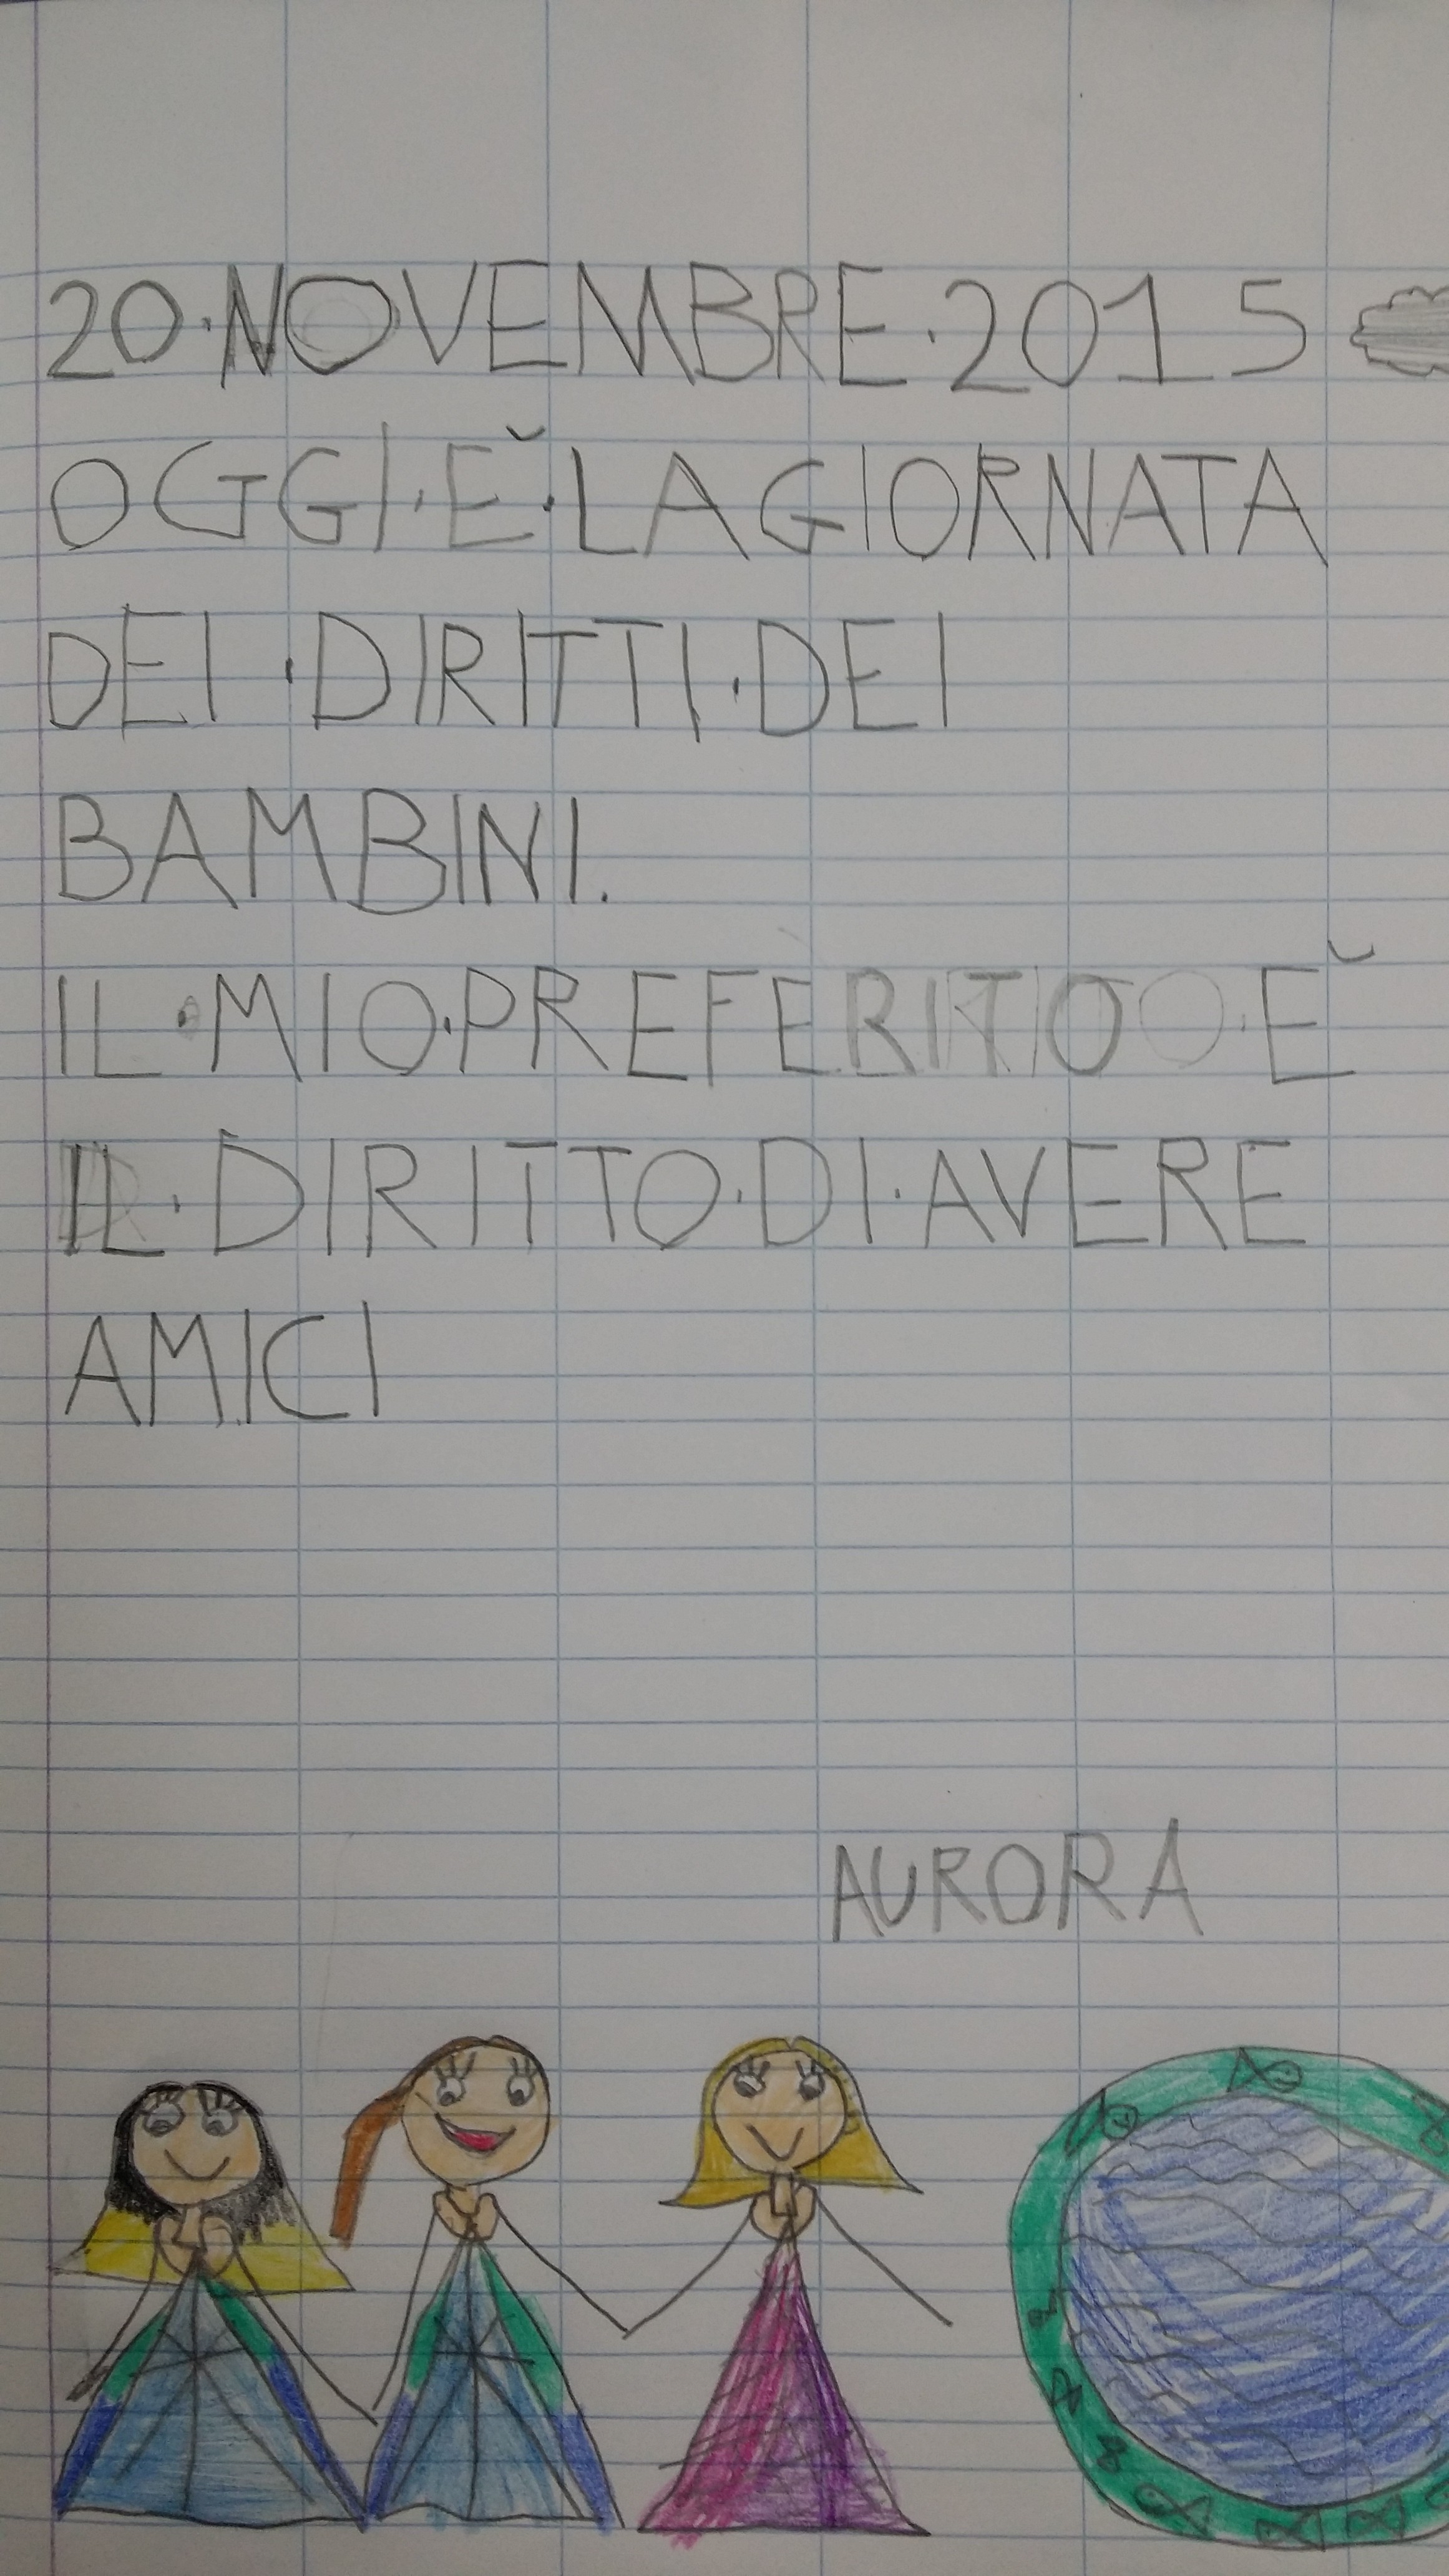 20·NOVEMBRE·2015
OGGI·È·LA GIORNATA
DEI·DIRITTI·DEI
BAMBINI.
IL·MIO·PREFERITO·È
IL·DIRITTO·DI·AVERE
AMICI
AURORA